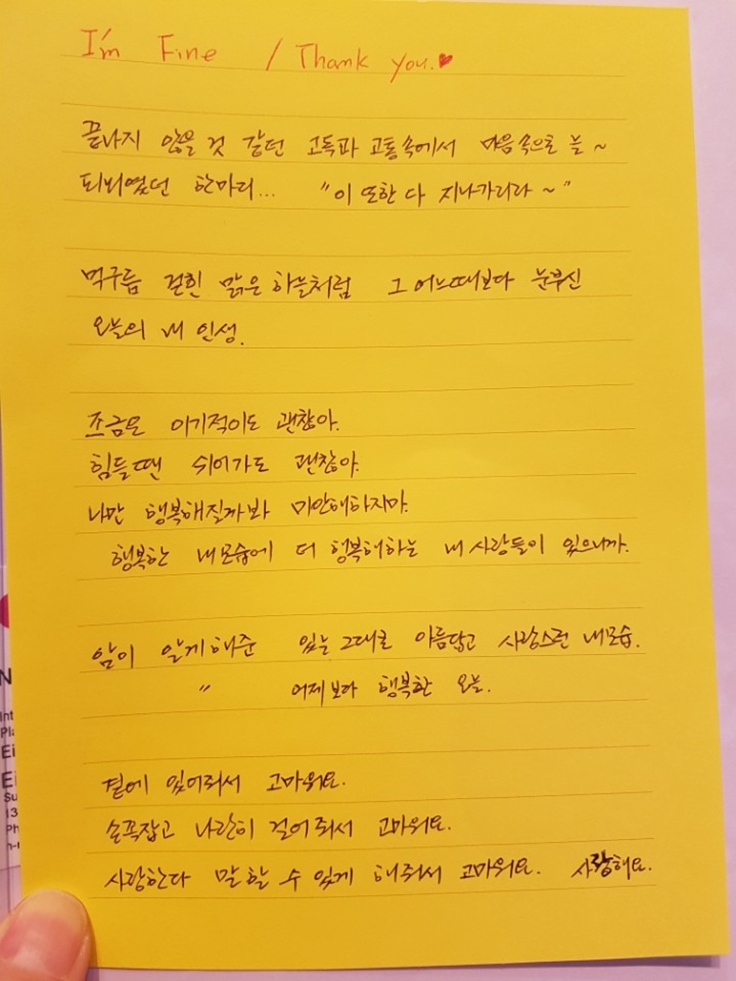 I'm Fine / Thank you.♥
끝나지 않을 것 같던 고독과 고통속에서 마음속으로 늘~
되뇌였던 한마디... "이 또한 다 지나가리라~"
먹구름 걷힌 맑은 하늘처럼 그 어느때보다 눈부신
오늘의 내 인생.
조금은 이기적이도 괜찮아.
힘들땐 쉬어가도 괜찮아.
나만 행복해질까봐 미안해하지마.
행복한 내모습에 더 행복해하는 내 사랑들이 있으니까.
앎이 알게해준 있는 그대로 아름답고 사랑스런 내모습.
〃 어제보다 행복한 오늘.
곁에 있어줘서 고마워요.
손꼭잡고 나란히 걸어줘서 고마워요.
사랑한다 말할 수 있게 해줘서 고마워요. 사랑해요.
N
Int
Pla
Ei
Ei
Su
13
Ph